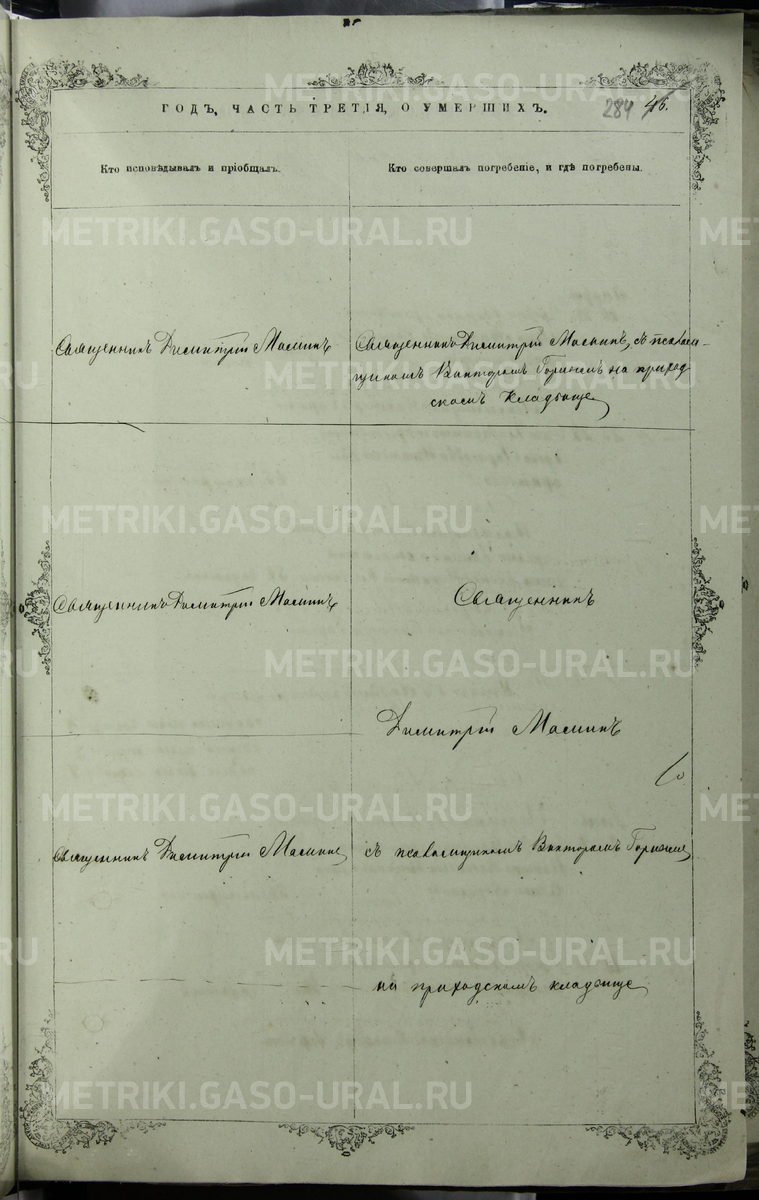 ГОДЪ, ЧАСТЬ ТРЕТІЯ, О УМЕРШИХЪ.
284 46.
Кто исповѣдывалъ и пріобщалъ.
Кто совершалъ погребеніе, и гдѣ погребены.
Священникъ Димитрій Маминъ
Священникъ Димитрій Маминъ, съ псалом-
щикомъ Викторомъ на приход
скомъ кладбище
Священникъ Димитрій Маминъ
Священникъ
Димитрій Маминъ
Священникъ Димитрій Маминъ
съ псаломщикомъ Викторомъ
на приходскомъ кладбище
METRIKI.GASO-URAL.RU